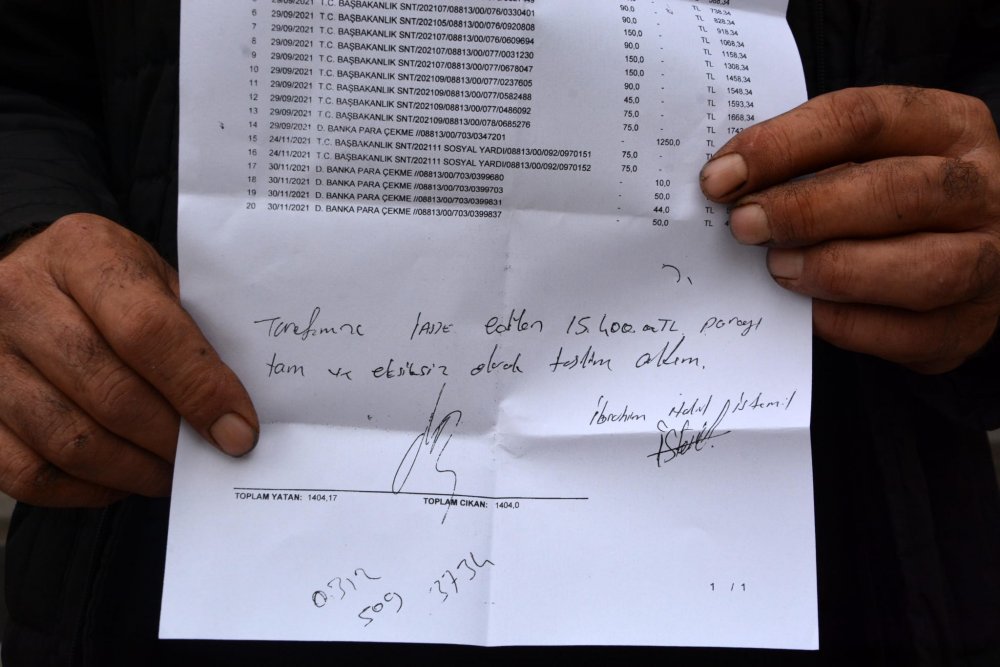 29/09/2021 T.C. BAŞBAKANLIK SNT/202107/08813/00/076/0330401 90,0 - TL 738,34
6 29/09/2021 T.C. BAŞBAKANLIK SNT/202105/08813/00/076/0920808 90,0 - TL 828,34
7 29/09/2021 T.C. BAŞBAKANLIK SNT/202107/08813/00/076/0609694 90,0 - TL 918,34
8 29/09/2021 T.C. BAŞBAKANLIK SNT/202107/08813/00/077/0031230 150,0 - TL 1068,34
9 29/09/2021 T.C. BAŞBAKANLIK SNT/202107/08813/00/077/0678047 90,0 - TL 1158,34
10 29/09/2021 T.C. BAŞBAKANLIK SNT/202109/08813/00/077/0237605 150,0 - TL 1308,34
11 29/09/2021 T.C. BAŞBAKANLIK SNT/202109/08813/00/077/0582488 150,0 - TL 1458,34
12 29/09/2021 T.C. BAŞBAKANLIK SNT/202109/08813/00/077/0486092 90,0 - TL 1548,34
13 29/09/2021 T.C. BAŞBAKANLIK SNT/202109/08813/00/078/0685276 45,0 - TL 1593,34
14 29/09/2021 D. BANKA PARA ÇEKME //08813/00/703/0347201 75,0 - TL 1668,34
15 24/11/2021 T.C. BAŞBAKANLIK SNT/202111 SOSYAL YARDI/08813/00/092/0970151 75,0 - TL
16 24/11/2021 T.C. BAŞBAKANLIK SNT/202111 SOSYAL YARDI/08813/00/092/0970152 - 1250,0 TL
17 30/11/2021 D. BANKA PARA ÇEKME //08813/00/703/0399680 75,0
18 30/11/2021 D. BANKA PARA ÇEKME //08813/00/703/0399703 75,0
19 30/11/2021 D. BANKA PARA ÇEKME //08813/00/703/0399831 - 10,0
20 30/11/2021 D. BANKA PARA ÇEKME //08813/00/703/0399837 - 50,0
- 44,0 TL
- 50,0 TL
Tarafımıza İADE edilen 15.400.00TL parayı
tam ve eksiksiz olarak teslim aldım.
İbrahim Halil İstemil
TOPLAM YATAN: 1404,17 TOPLAM CIKAN: 1404,0
0.312
509 3734
1 / 1